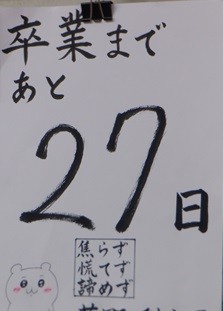 卒業まで
あと
27日
焦らず
慌てず
諦めず